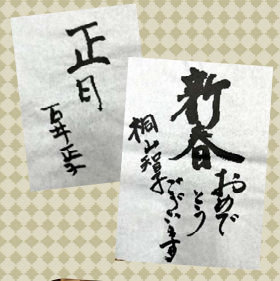 正月
石井正子
新春
おめで
とう
ございます
桐山智子